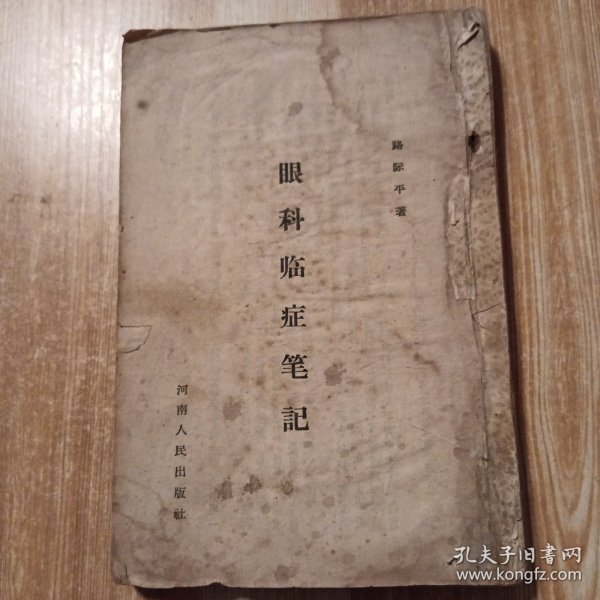 路际平著
眼科临症笔記
河南人民出版社
孔夫子旧书网
www.kongfz.com